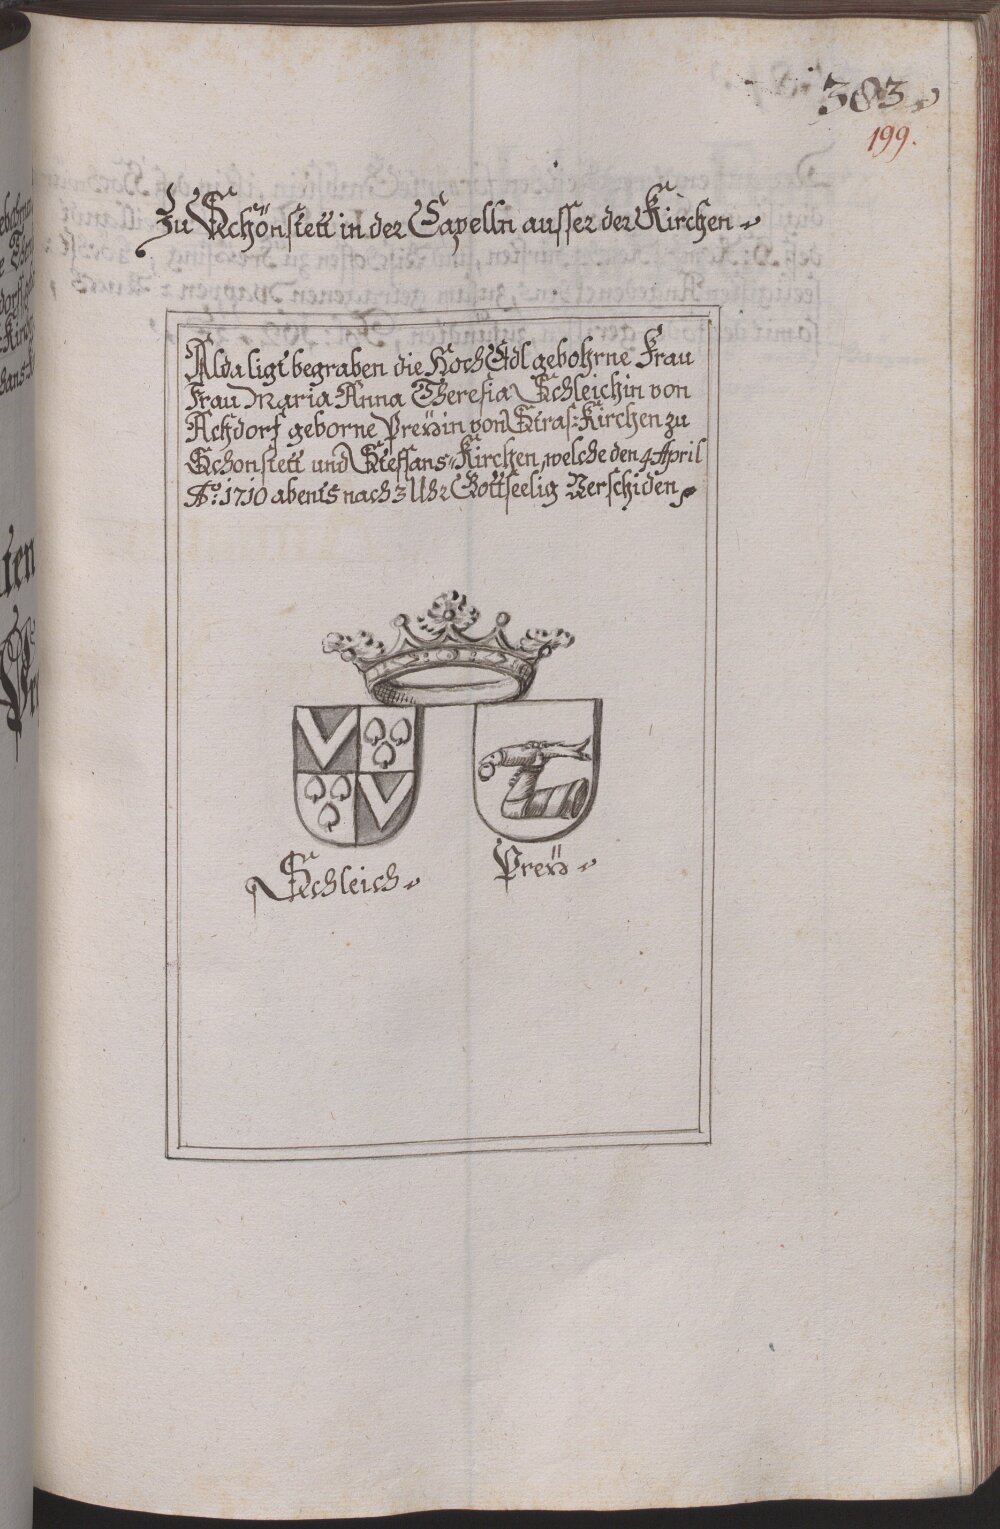 383
199.
Zu Schönstett in der Capelln ausser der Kirchen
Alda ligt begraben die HochEdl gebohrne Frau
Frau Maria Anna Theresia Schleichin von
Achdorf geborne Preÿin von Stras=Kirchen zu
Schonstett und Steffans=Kirchen, welche den 4 April
Aō: 1710 abents nach 3 Uhr Gottseelig Verschiden
Schleich
Preÿ